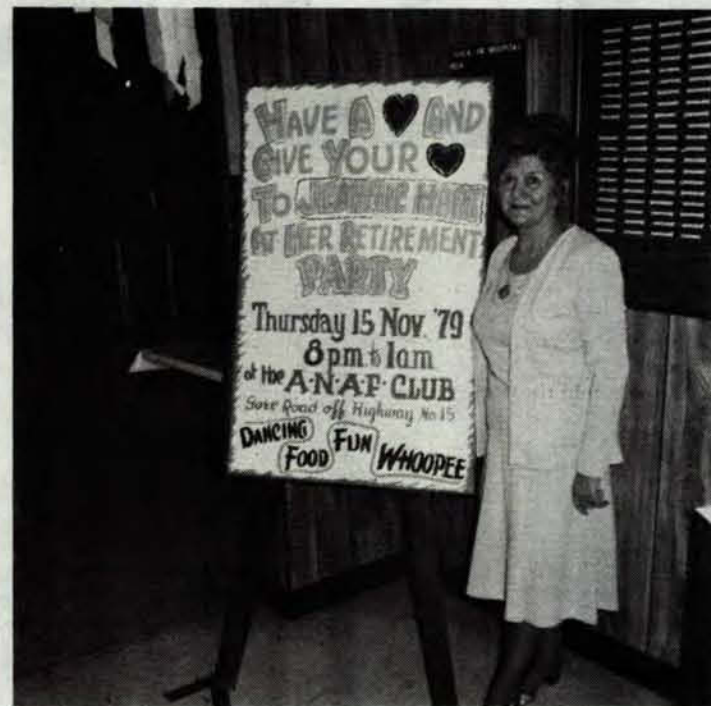 HAVE A ♥ AND
GIVE YOUR ♥
TO JEANNIE HART
AT HER RETIREMENT
PARTY
Thursday 15 Nov. '79
8pm to 1am
at the A·N·A·F· CLUB
Road off Highway No 15
DANCING
FOOD FUN WHOOPEE